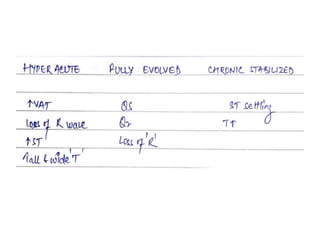 HYPER ACUTE FULLY EVOLVED CHRONIC STABILIZED
↑VAT QS ST settling
Loss of R wave Qr T↑
↑ST Loss of 'R'
Tall & wide 'T'